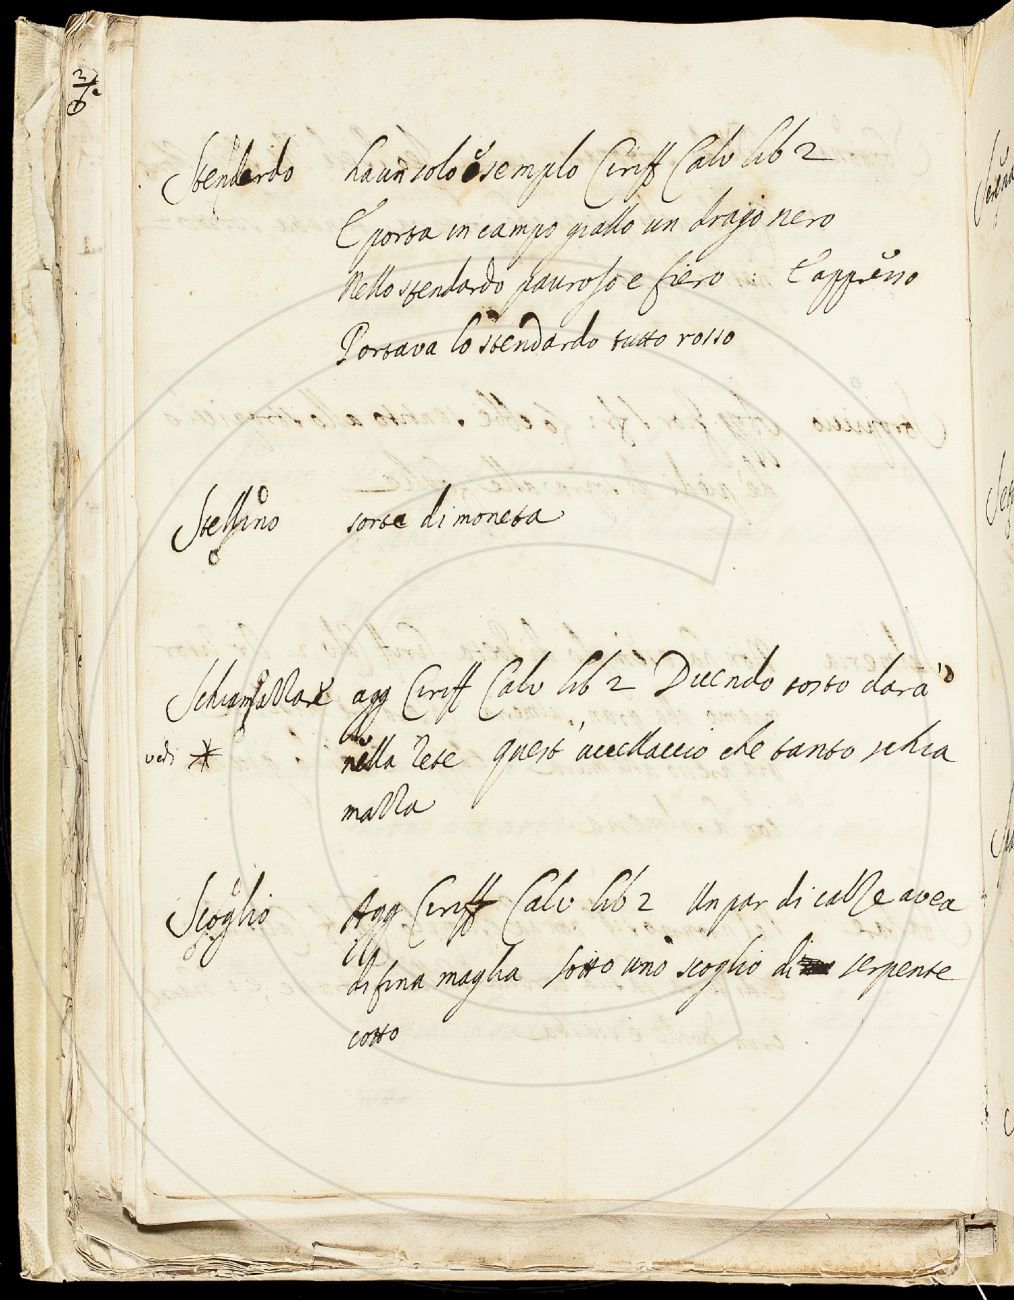 Stendardo ha un solo esemplo Ciriff Calv lib 2
E porta in campo giallo un drago nero
Nello stendardo pauroso e fiero : E appresso
Portava lo stendardo tutto rosso
Stellino sorte di moneta
Schiamazzare agg Ciriff Calv lib 2 Dicendo tosto darà
vedi * nella rete quest' uccellaccio che tanto schia
mazza
Scoglio Agg Ciriff Calv lib 2 Un par di calze avea
di fina maglia sotto uno scoglio di serpente
cotto